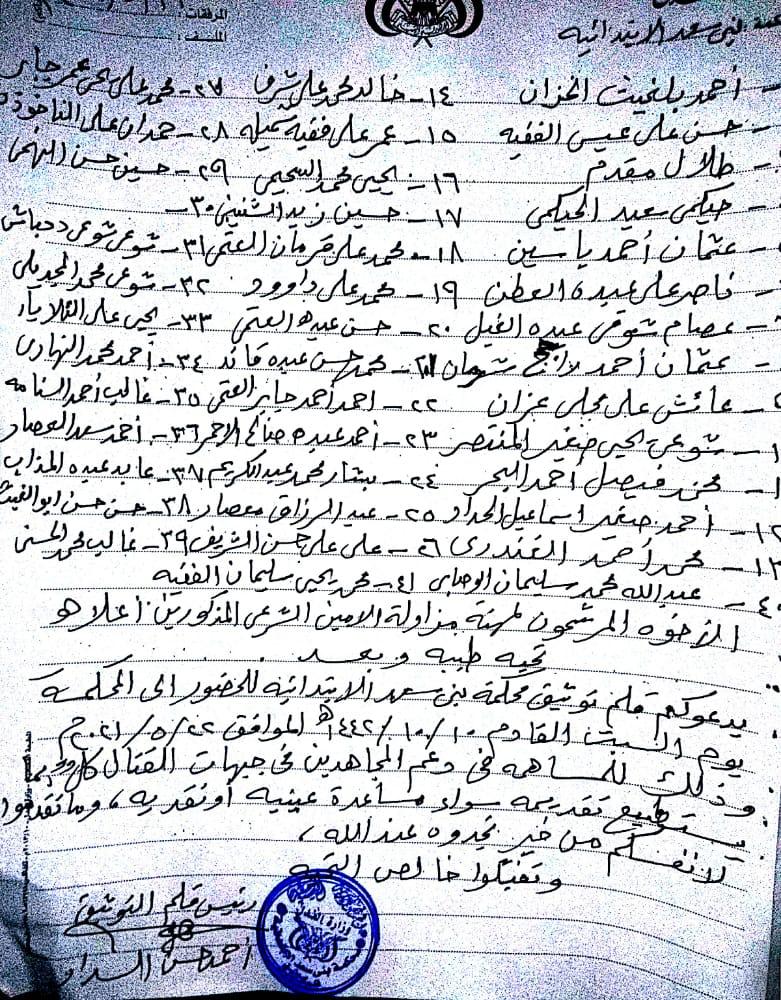 المرفقات:
بني سعد الابتدائيه
أحمد بلغيث الخزان ١٤ـ خالد محمد علي شرف ٢٧ـ محمد علي يحي عمر جابر
حسن علي عيسى الفقيه ١٥ـ عمر علي فقيه ٢٨ـ حمدان علي
طلال مقدم ١٦ـ يحيى محمد السحيمي ٢٩ـ حسين حسن النهمي
حيكمي سعيد الحيكمي ١٧ـ حسين زيد ٣٠ـ
عثمان أحمد ياسين ١٨ـ محمد علي قرمان العتمي ٣١ـ شوعي شوعي دحباش
ناصر علي عبده العطن ١٩ـ محمد علي داوود ٣٢ـ شوعي محمد
عصام شوقي عبده الفيل ٢٠ـ حسن عبده العتمي ٣٣ـ يحي علي
عثمان أحمد ٢١ـ محمد حسن عبده قائد ٣٤ـ أحمد محمد النهاري
عائش علي محلي عزان ٢٢ـ احمد أحمد جابر العتمي ٣٥ـ غالب أحمد
شوعي يحيى صغير المنتصر ٢٣ـ أحمد عبده صالح الاحمر ٣٦ـ أحمد سعد العصار
محمد فيصل أحمد البحر ٢٤ـ بشار محمد عبدالكريم ٣٧ـ عابد عبده المذاب
١٢ـ أحمد صغير اسماعيل الحداد ٢٥ـ عبدالرزاق معصار ٣٨ـ حسن حسن ابوالغيث
١٣ـ محمد أحمد ٢٦ـ علي علي حسن الشريف ٣٩ـ غالب محمد الحسني
٤٠ـ عبدالله محمد سليمان الوصابي ٤١ـ محمد يحيى سليمان الفقيه
الأخوه المرشحون لمهنة مزاولة الامين الشرعي المذكورين أعلاه
تحيه طيبه وبعد
يدعوكم قلم توثيق محكمة بني سعد الابتدائيه للحضور الى المحكمة
يوم السبت القادم ١٠/١٠/١٤٤٢هـ الموافق ٢٢/٥/٢٠٢١م
وذلك للمساهمه في دعم المجاهدين في جبهات القتال كل
يستطيع تقديمه سواء مساعدة عينيه أو نقديه، وما تقدموا
لأنفسكم من خير تجدوه عندالله،
وتقبلوا خالص التحيه
رئيس قلم التوثيق
أحمد حسن